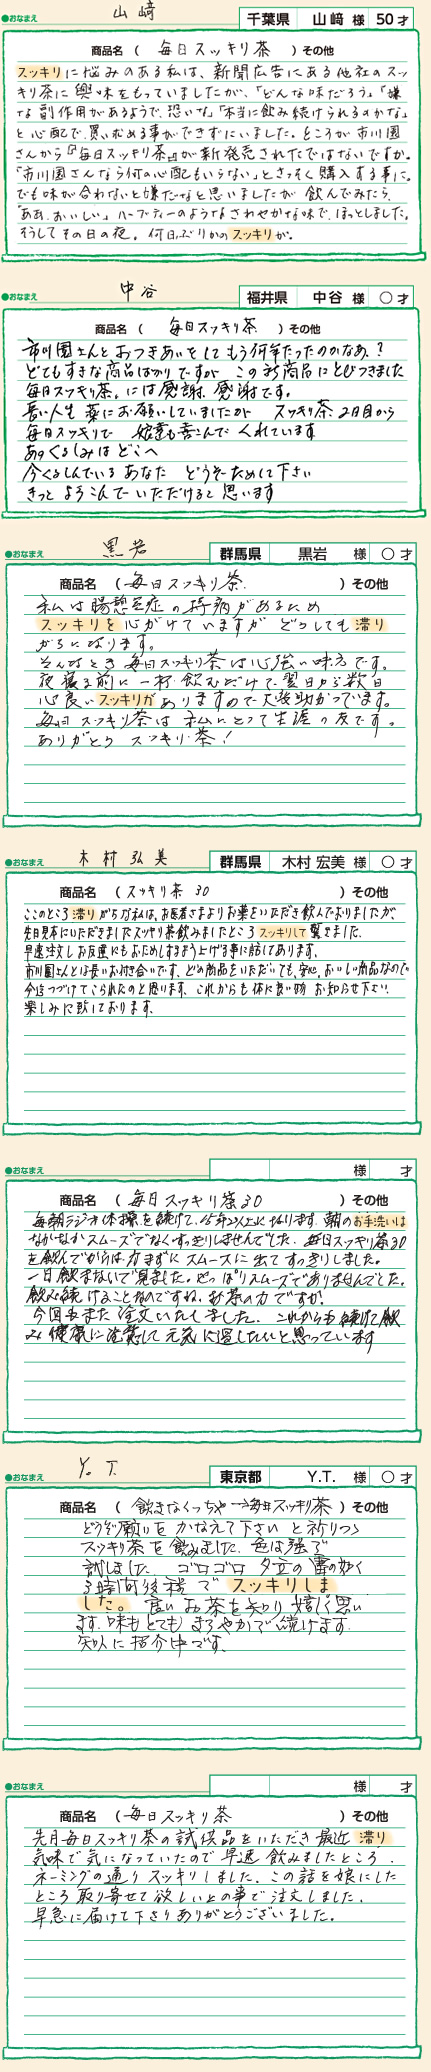 ●おなまえ 山﨑 千葉県 山﨑 様 50才
商品名 ( 毎日スッキリ茶 ) その他
スッキリに悩みのある私は、新聞広告にある他社のスッ
キリ茶に興味をもっていましたが、「どんな味だろう」「嫌
な副作用があるようで、恐いな」「本当に飲み続けられるのかな」
と心配で、買い求める事ができずにいました。ところが市川園
さんから『毎日スッキリ茶』が新発売されたではないですか。
「市川園さんなら何の心配もいらない」とさっそく購入する事に。
でも味が合わないと嫌だなと思いましたが 飲んでみたら、
「ああ、おいしい」ハーブティーのようなさわやかな味で、ほっとしました。
そうしてその日の夜。何日ぶりかのスッキリが。
●おなまえ 中谷 福井県 中谷 様 〇才
商品名 ( 毎日スッキリ茶 ) その他
市川園さんと おつきあいをして もう何年たったのかなあ?
とてもすきな商品ばかりですが この新商品にとびつきました
毎日スッキリ茶。には感謝 感謝です。
長い人生 薬にお願いしていましたが スッキリ茶2日目から
毎日スッキリで も喜こんでくれています
あのくるしみはどこへ
今くるしんでいるあなた どうぞためして下さい
きっと よろこんでいただけると思います
●おなまえ 黒岩 群馬県 黒岩 様 〇才
商品名 ( 毎日スッキリ茶 ) その他
私は腸憩室症の持病があるため
スッキリを心がけていますが どうしても滞り
がちになります。
そんなとき毎日スッキリ茶は心強い味方です。
夜寝る前に一杯飲むだけで翌日から数日
心良いスッキリがありますので大変助かっています。
毎日スッキリ茶は私にとって生涯の友です。
ありがとう スッキリ茶!
●おなまえ 木村弘美 群馬県 木村 宏美 様 〇才
商品名 ( スッキリ茶 30 ) その他
ここのところ滞りがちな私は、お医者さまよりお薬をいただき飲んでおりましたが
先日見本にいただきましたスッキリ茶飲みましたところスッキリして驚きました。
早速注文しお友達にもおためしするよう上げる事に致しております。
市川園さんとは長いお付き合いです、どの商品をいただいても、安心、おいしい商品なので
今迄つづけてこられたのと思います、これからも体に良い物お知らせ下さい
楽しみに致しております。
●おなまえ 様 才
商品名 ( 毎日スッキリ茶30 ) その他
毎朝ラジオ体操を続けて、15年以上になります。朝のお手洗いは
なかなかスムーズでなくすっきりしませんでした。毎日スッキリ茶30
を飲んでからは力まずにスムースに出てすっきりしました。
一日飲まないで見ました。やっぱりスムーズでありませんでした。
飲み続けることなのですね。お茶の力ですか
今回もまた注文いたしました。これからも続けて飲
み健康に注意して元気に過したいと思っています
●おなまえ Y.T. 東京都 Y.T. 様 〇才
商品名 ( 飲まなくっちゃ→毎日スッキリ茶 ) その他
どうぞ願いをかなえて下さいと祈りつつ
スッキリ茶を飲みました。色は強で
試しました ゴロゴロ夕立の雷の如く
3時間後程でスッキリしま
した。良いお茶を知り嬉しく思い
ます。味もとてもまろやかで続けます。
知人に紹介中です。
●おなまえ 様 才
商品名 ( 毎日スッキリ茶 ) その他
先月毎日スッキリ茶の試供品をいただき最近滞り
気味で気になっていたので早速飲みましたところ、
ネーミングの通りスッキリしました。この話を娘にした
ところ取り寄せて欲しいとの事で注文しました。
早急に届けて下さりありがとうございました。